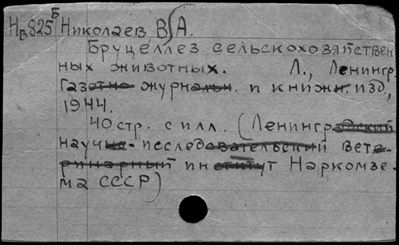 Нв825Б Николаев В.А.
Бруцеллез сельскохозяйствен
ных животных. Л., Ленингр.
Газетно-журнальн. и книжн. изд,
1944.
40 стр. с илл. (Ленинградский
научно-исследовательский вете-
ринарный институт Наркомзе-
ма СССР)